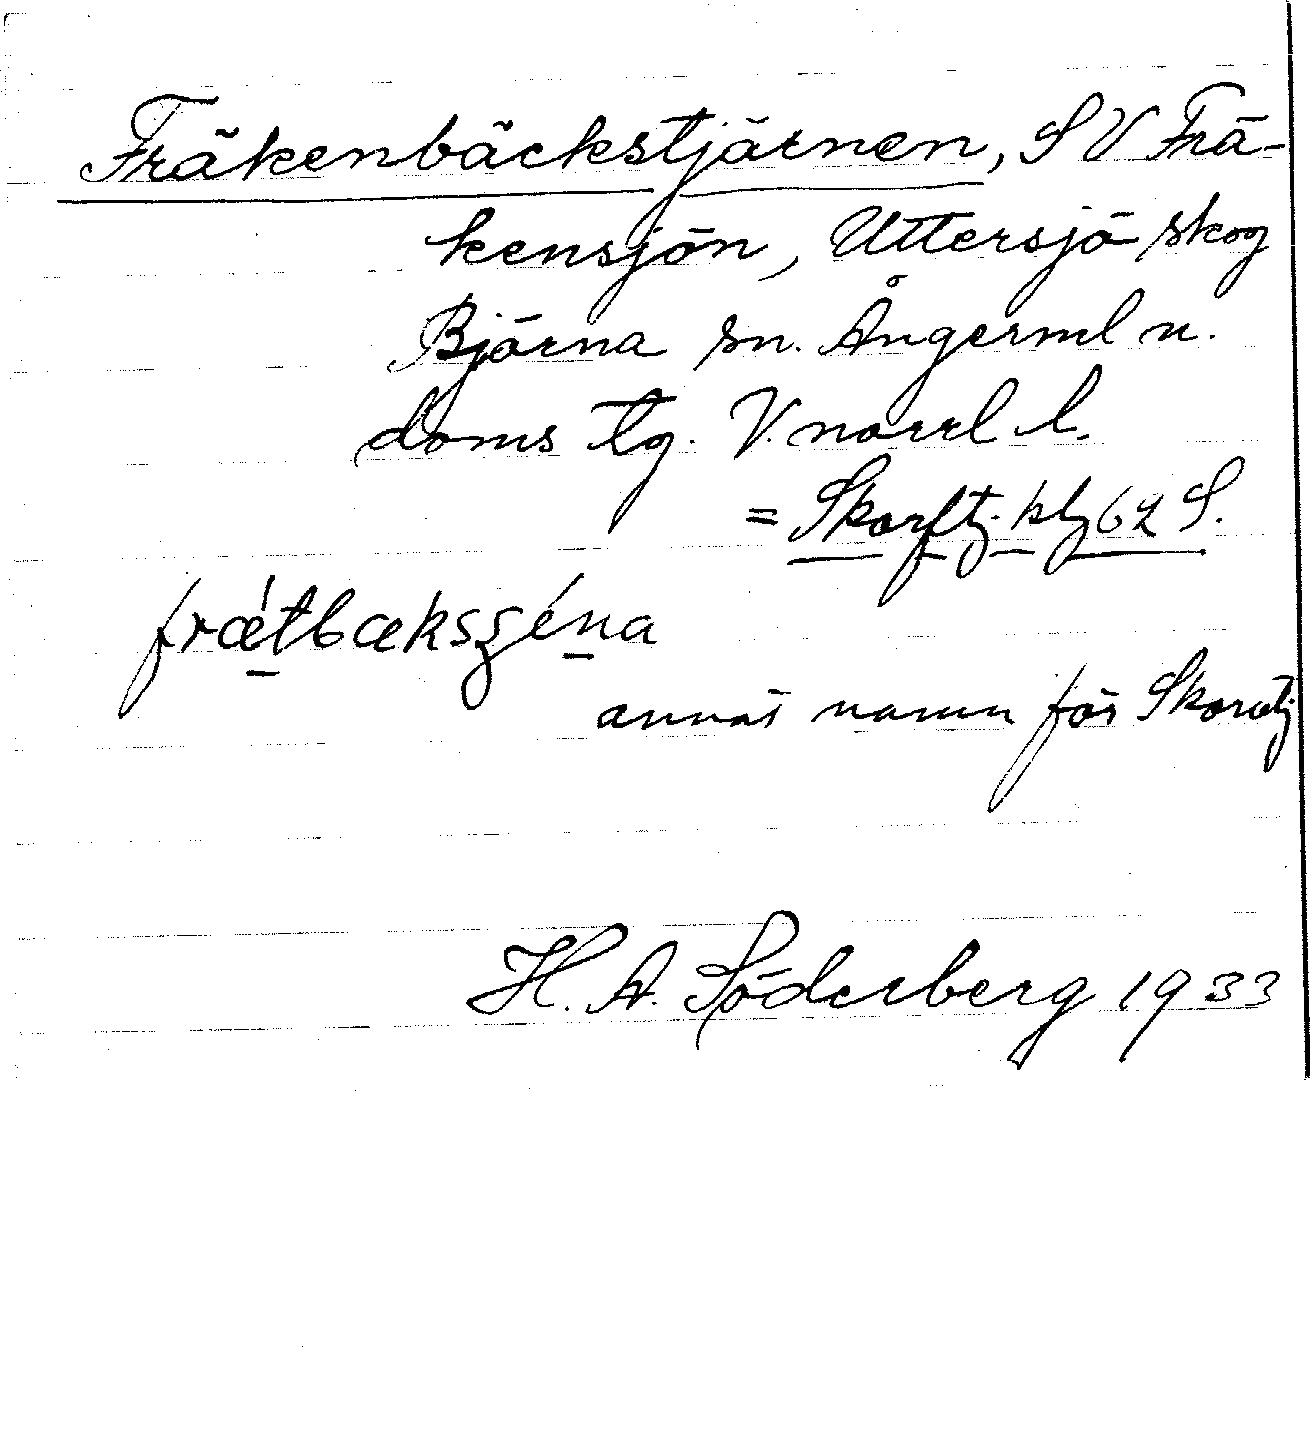 Fräkenbäckstjärnen, S V Frä-
kensjön, Uttersjö skog
Björna sn. Ångerml n.
doms lg. V. norrl l.
= Skorftj. kbl 62 S.
frǽtbæksʒéna
annat namn för Skorvtj
H. A. Söderberg 1933